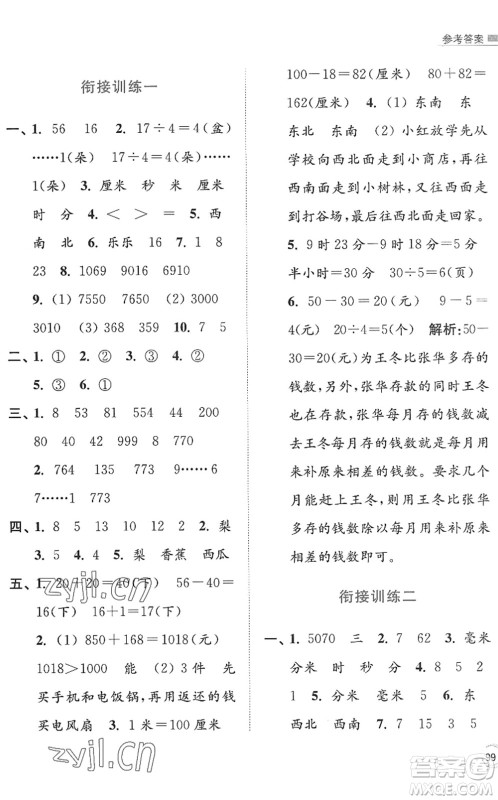 参考答案
衔接训练一
一、1. 56 16 2. 17÷4=4(盆)
……1(朵) 17÷4=4(朵)……
1(朵) 3. 厘米 秒 米 厘米
时 分 4. < > = 5. 西
南 北 6. 乐乐 16 7. 1 8
23 8. 1069 9016 6910
9. (1) 7550 7650 (2) 3000
3010 (3) 558 559 10. 7 5
二、1. ① 2. ② 3. ③ 4. ②
5. ③ 6. ①
三、1. 8 53 81 554 44 200
80 40 42 929 8 770
2. 764 135 773 9……6
6……1 773
四、1. 8 5 13 10 12 2. 梨
3. 20 4. 4 5. 梨 香蕉 西瓜
五、1. 20+20=40(下) 56-40=
16(下) 16+1=17(下)
2. (1) 850+168=1018(元)
1018>1000 能 (2) 3件 先
买手机和电饭锅,再用返还的钱
买电风扇 3. 1米=100厘米
100-18=82(厘米) 80+82=
162(厘米) 4. (1) 东南 东
东北 东南 (2) 小红放学先从
学校向西北面走到小商店,再
向西面走到小树林,再向西南走
到打谷场,最后向西北面走回家。
5. 9时23分-9时18分=5分
半小时=30分 30÷5=6(页)
6. 50-30=20(元) 9-5=
4(元) 20÷4=5(个) 解析:
因为王冬比张华多存的
钱数,另外,张华存款的同时王冬
也在存款,张华每月存的钱数减
去王冬每月存的钱数就是用
来补原来相差的钱数。要求几个
月能赶上王冬,则用王冬比张华
多存的钱数除以每月用来补原来
相差的钱数即可。
衔接训练二
一、1. 5070 三 2. 7 62 3. 毫米
分米 时 秒 分 4. 7 8
1 5 0 分米 毫米 5. 东
西北 西南 6. 2 7. 5
99
zyjl.cn
zyjl.cn
答案圈
MXQE.COM